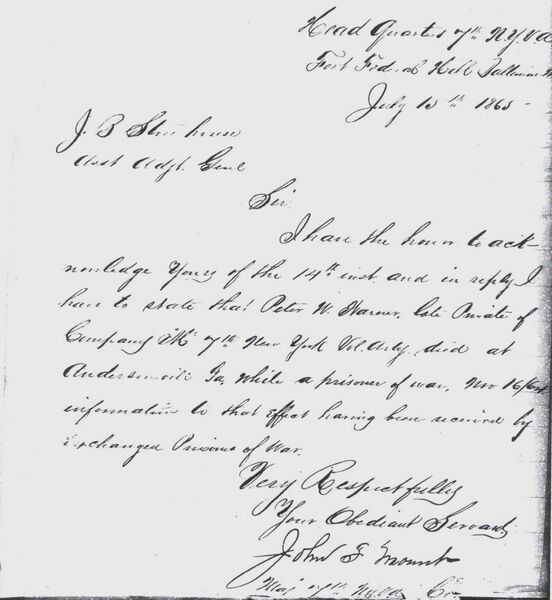 Head Quarters 7th N.Y.V.A
Fort Federal Hill Baltimore Md
July 15th 1865
J. B. Stonehouse
Asst Adjt. Genl
Sir
I have the honor to ack-
nowledge Yours of the 14th inst. and in reply I
have to state that Peter W. Warner, late Private of
Company "M" 7th New York Vol. Arty. died at
Andersonvile Ga, while a prisoner of war, Nov 16/64
information to that effect having been received by
Exchanged Prisoners of War.
Very Respectfully
Your Obediant Servant
John F Mount
Maj 7th N.Y.V.A